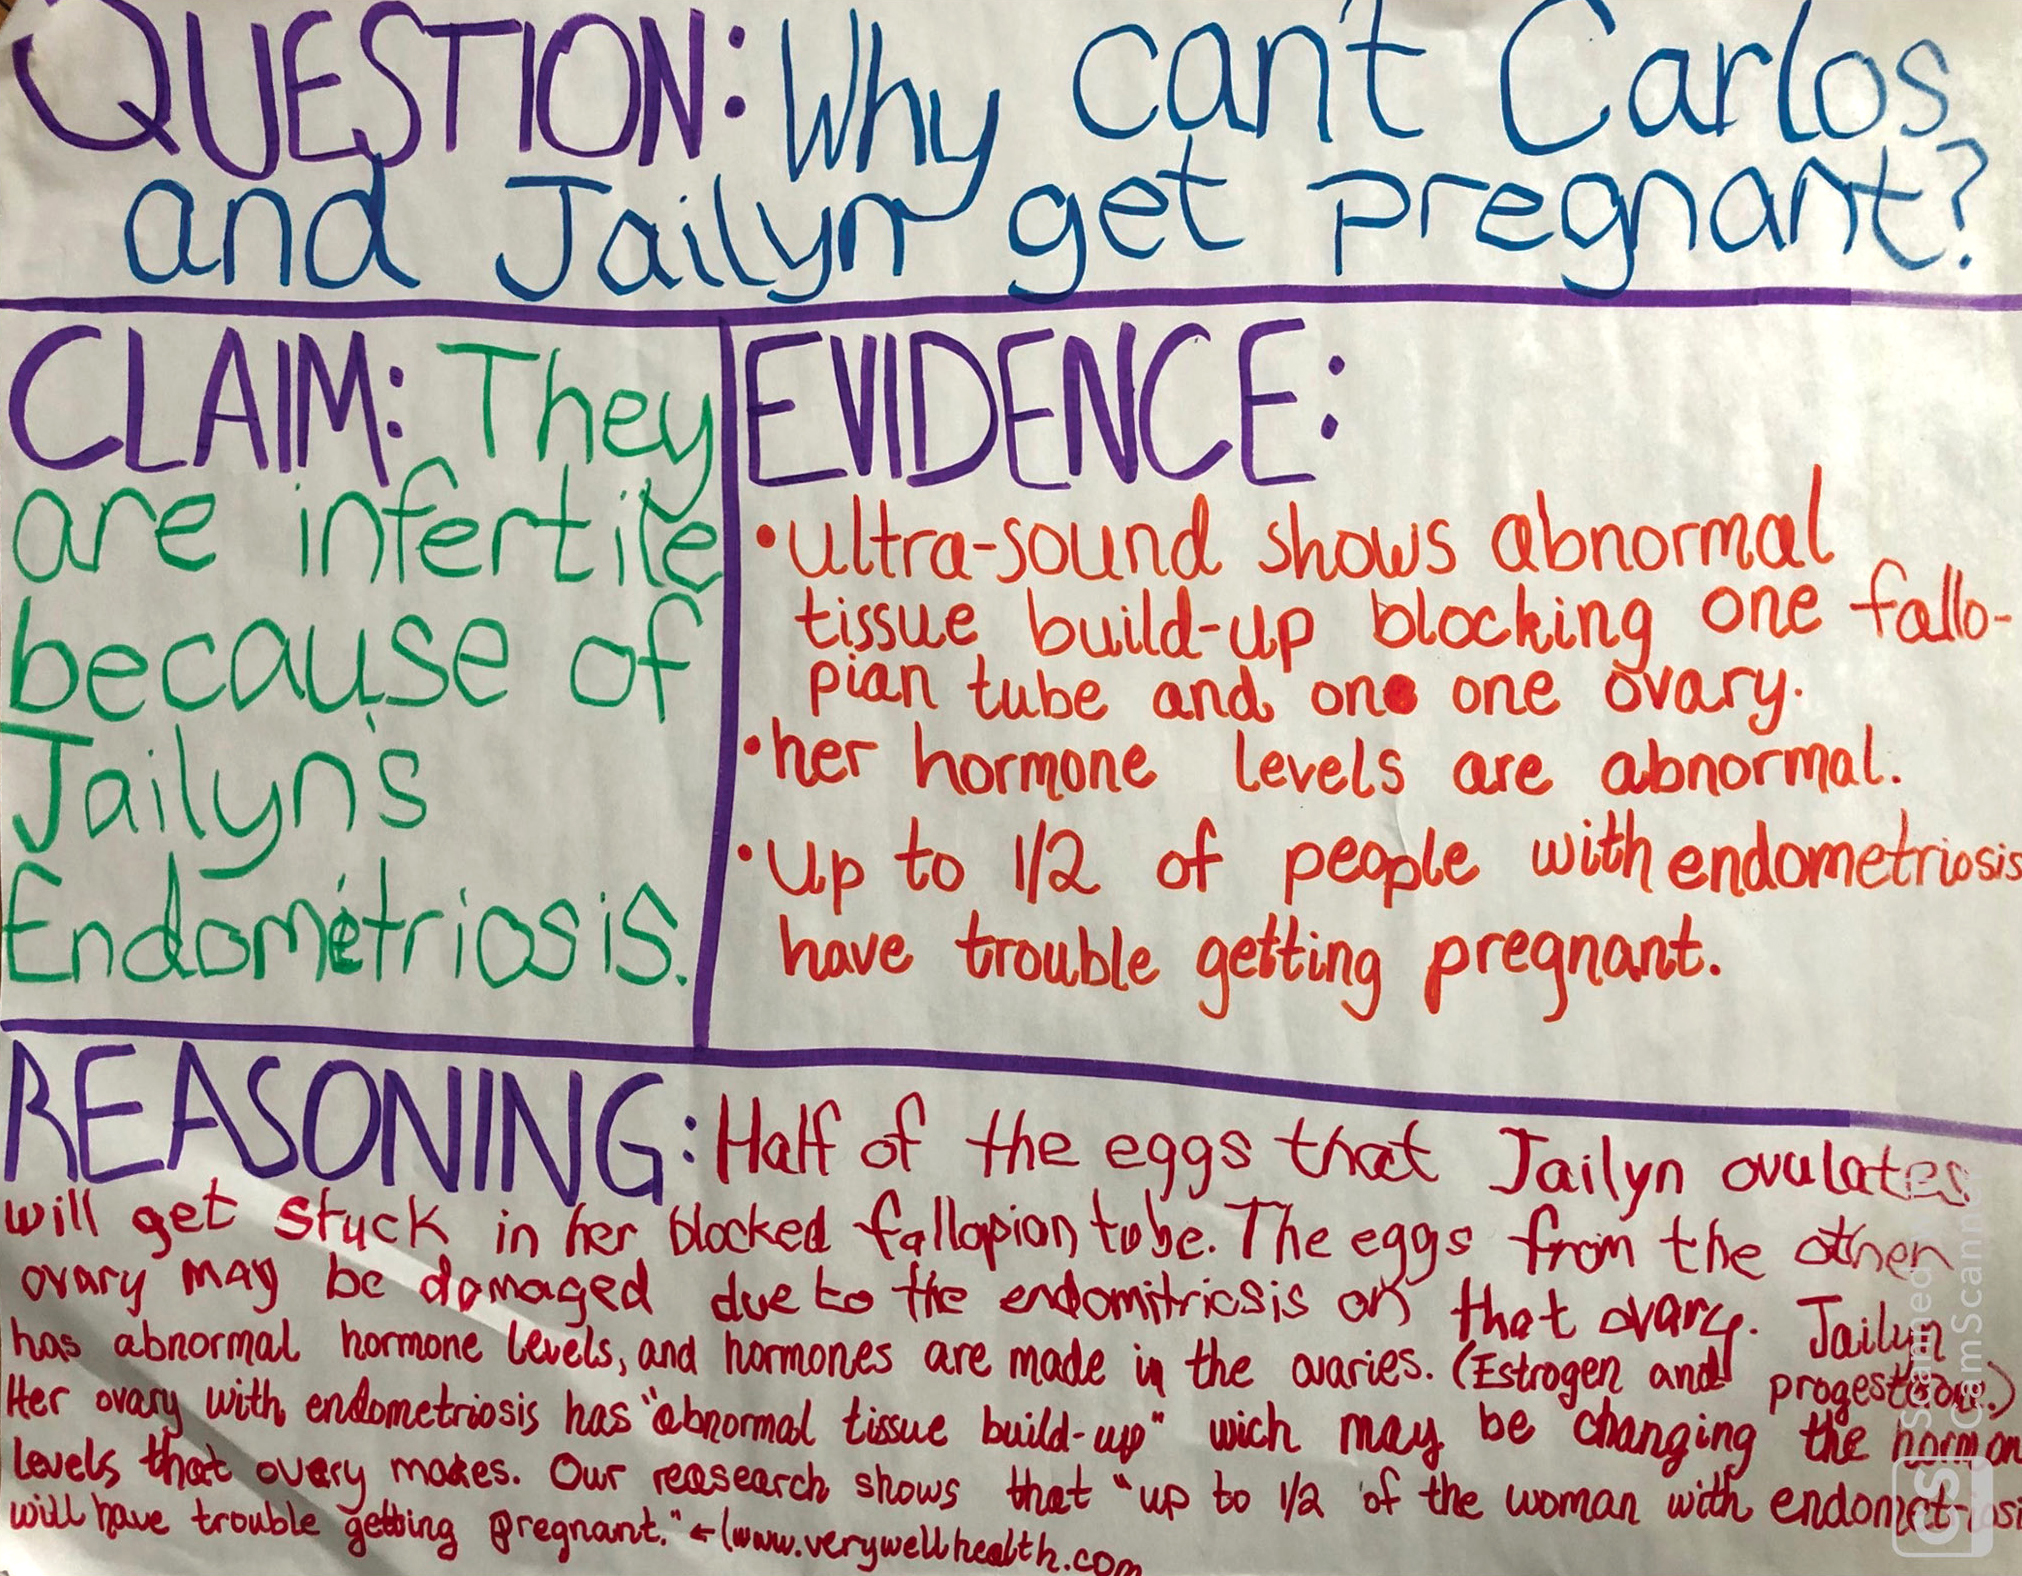 QUESTION: Why can't Carlos
and Jailyn get pregnant?
CLAIM: They
are infertile
because of
Jailyn's
Endometriosis.
EVIDENCE:
•ultra-sound shows abnormal
tissue build-up blocking one fallo-
pian tube and on one ovary.
•her hormone levels are abnormal.
•Up to 1/2 of people with endometriosis
have trouble getting pregnant.
REASONING: Half of the eggs that Jailyn ovulates
will get stuck in her blocked fallopian tube. The eggs from the other
ovary may be damaged due to the endomitriosis on that ovary. Jailyn
has abnormal hormone levels, and hormones are made in the ovaries. (Estrogen and progesteron.)
Her ovary with endometriosis has "abnormal tissue build-up" wich may be changing the hormon
levels that ovary makes. Our reasearch shows that "up to 1/2 of the woman with endometriosi
will have trouble getting pregnant." ← (www.verywellhealth.com
CS Scanned with
CamScanner